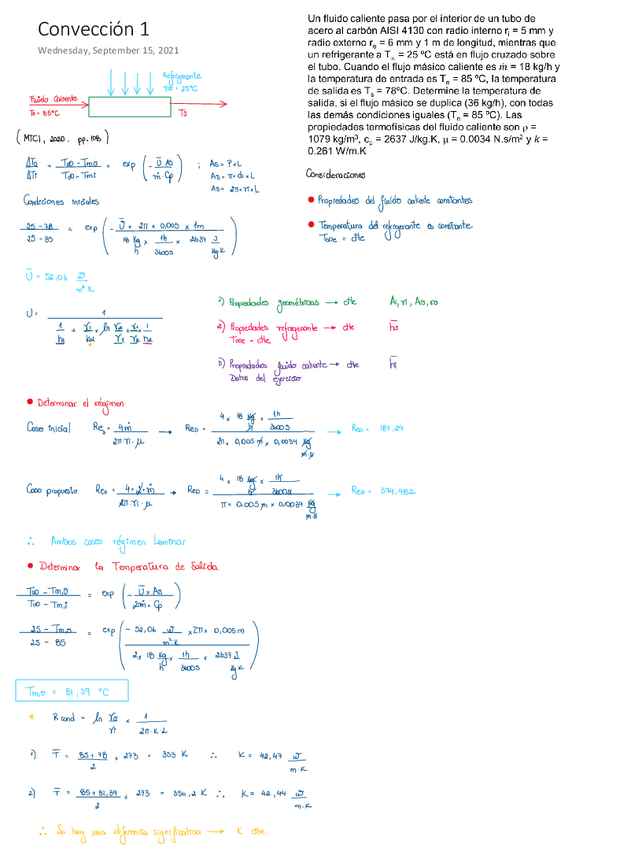 Convección 1
Wednesday, September 15, 2021
Un fluido caliente pasa por el interior de un tubo de
acero al carbón AISI 4130 con radio interno rᵢ = 5 mm y
radio externo rₑ = 6 mm y 1 m de longitud, mientras que
un refrigerante a T∞ = 25 ºC está en flujo cruzado sobre
el tubo. Cuando el flujo másico caliente es ṁ = 18 kg/h y
la temperatura de entrada es Tₑ = 85 ºC, la temperatura
de salida es Tₛ = 78ºC. Determine la temperatura de
salida, si el flujo másico se duplica (36 kg/h), con todas
las demás condiciones iguales (Tₑ = 85 ºC). Las
propiedades termofísicas del fluido caliente son ρ =
1079 kg/m³, cₚ = 2637 J/kg.K, μ = 0.0034 N.s/m² y k =
0.261 W/m.K
Consideraciones
● Propiedades del fluido caliente constantes
● Temperatura del refrigerante es constante
T∞e = cte
Refrigerante
T∞ = 25°C
Fluido Caliente
Te = 85°C
Ts
(MTCI, 2020. pp. 106)
ΔTo / ΔTi = T∞ - Tmo / T∞ - Tmi = exp (- Ū As / ṁ · Cp) ; As = P × L
As = π · di × L
As = 2π × ri × L
Condiciones iniciales
25 - 78 / 25 - 85 = exp (- Ū × 2π × 0,005 × 1m / 18 kg/h × 1h/3600s × 2637 J/kg K)
Ū = 52,06 W/m² K
U = 1 / (1/hi + ri/k × ln re/ri + ri/re 1/he)
1) Propiedades geométricas → cte Ai, ri, As, ro
2) Propiedades refrigerante → cte h̄o
T∞e = cte
3) Propiedades fluido caliente → cte h̄i
Datos del ejercicio
● Determinar el régimen
Caso inicial Re_D = 4ṁ / 2π · ri · μ → Re_D = 4 × 18 kg/h × 1h/3600s / 2π × 0,005 m × 0,0034 kg/m·s → Re_D = 187,24
Caso propuesto Re_D = 4 · 2 · ṁ / 2π · ri · μ → Re_D = 4 × 18 kg/h × 1h/3600s / π × 0,005m × 0,0034 kg/m·s → Re_D = 374,482
∴ Ambos casos régimen Laminar
● Determinar la Temperatura de Salida
T∞ - Tm,o / T∞ - Tm,i = exp (- Ū × As / 2ṁ · Cp)
25 - Tm,o / 25 - 85 = exp (- 52,06 W/m² K × 2π × 0,005m / 2 × 18 kg/h × 1h/3600s × 2637 J/kg K)
Tm,o = 81,39 °C
* R cond = ln ro/ri × 1 / 2π · k · L
1) T̄ = 85 + 78 / 2 + 273 = 353 K ∴ K = 42,47 W/m·K
2) T̄ = 85 + 81,39 / 2 + 273 = 356,2 K ∴ K = 42,44 W/m·K
∴ No hay una diferencia significativa → K cte.